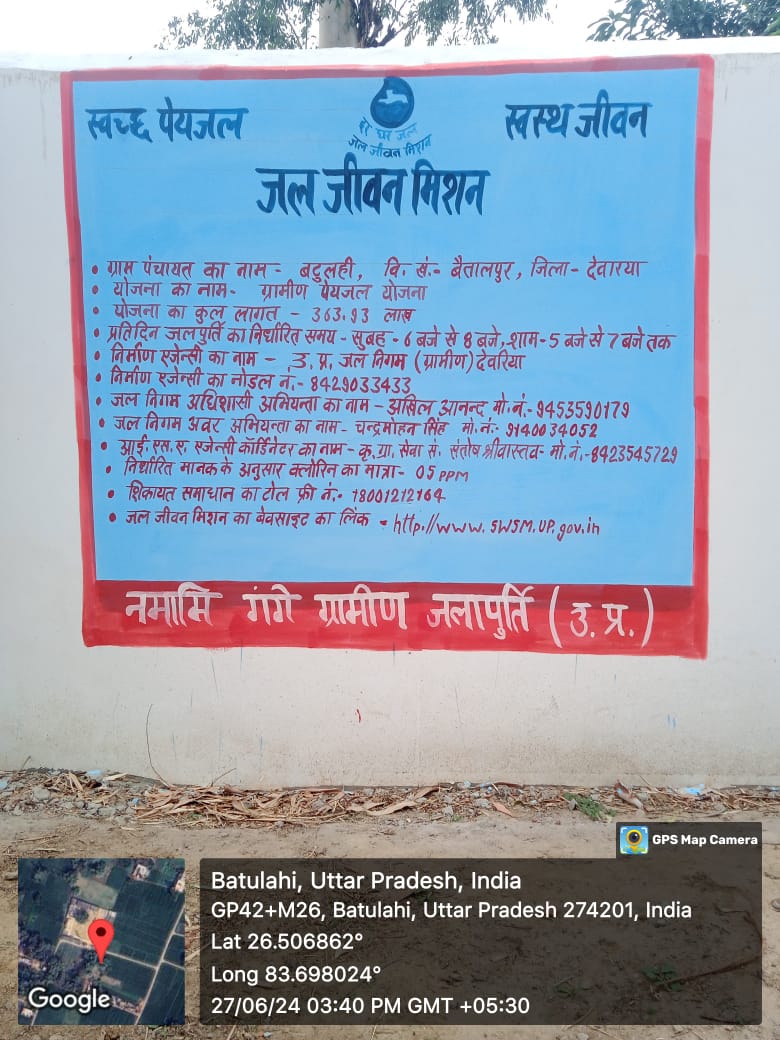 स्वच्छ पेयजल
हर घर जल
जल जीवन मिशन
स्वस्थ जीवन
जल जीवन मिशन
• ग्राम पंचायत का नाम - बटुलही, वि. खं.- बैतालपुर, जिला - देवारया
• योजना का नाम- ग्रामीण पेयजल योजना
• योजना का कुल लागत - 363.93 लाख
• प्रतिदिन जलपुर्ति का निर्धारित समय - सुबह - 6 बजे से 8 बजे, शाम - 5 बजे से 7 बजे तक
• निर्माण एजेन्सी का नाम - उ. प्र. जल निगम (ग्रामीण) देवरिया
• निर्माण एजेन्सी का नोडल नं.- 8429033433
• जल निगम अधिशासी अभियन्ता का नाम - अखिल आनन्द मो. नं.- 9453590179
• जल निगम अवर अभियन्ता का नाम - चन्द्रमोहन सिंह मो. नं.- 9140034052
• आई. एस. ए. एजेन्सी कॉर्डिनेटर का नाम - कृ. ग्रा. सेवा सं. संतोष श्रीवास्तव - मो. नं.- 8423545729
• निर्धारित मानक के अनुसार क्लोरिन का मात्रा - 05 PPM
• शिकायत समाधान का टोल फ्री नं.- 18001212164
• जल जीवन मिशन का वेवसाइट का लिंक - http://www.SWSM.UP.gov.in
नमामि गंगे ग्रामीण जलापुर्ति (उ. प्र.)
GPS Map Camera
Google
Batulahi, Uttar Pradesh, India
GP42+M26, Batulahi, Uttar Pradesh 274201, India
Lat 26.506862°
Long 83.698024°
27/06/24 03:40 PM GMT +05:30